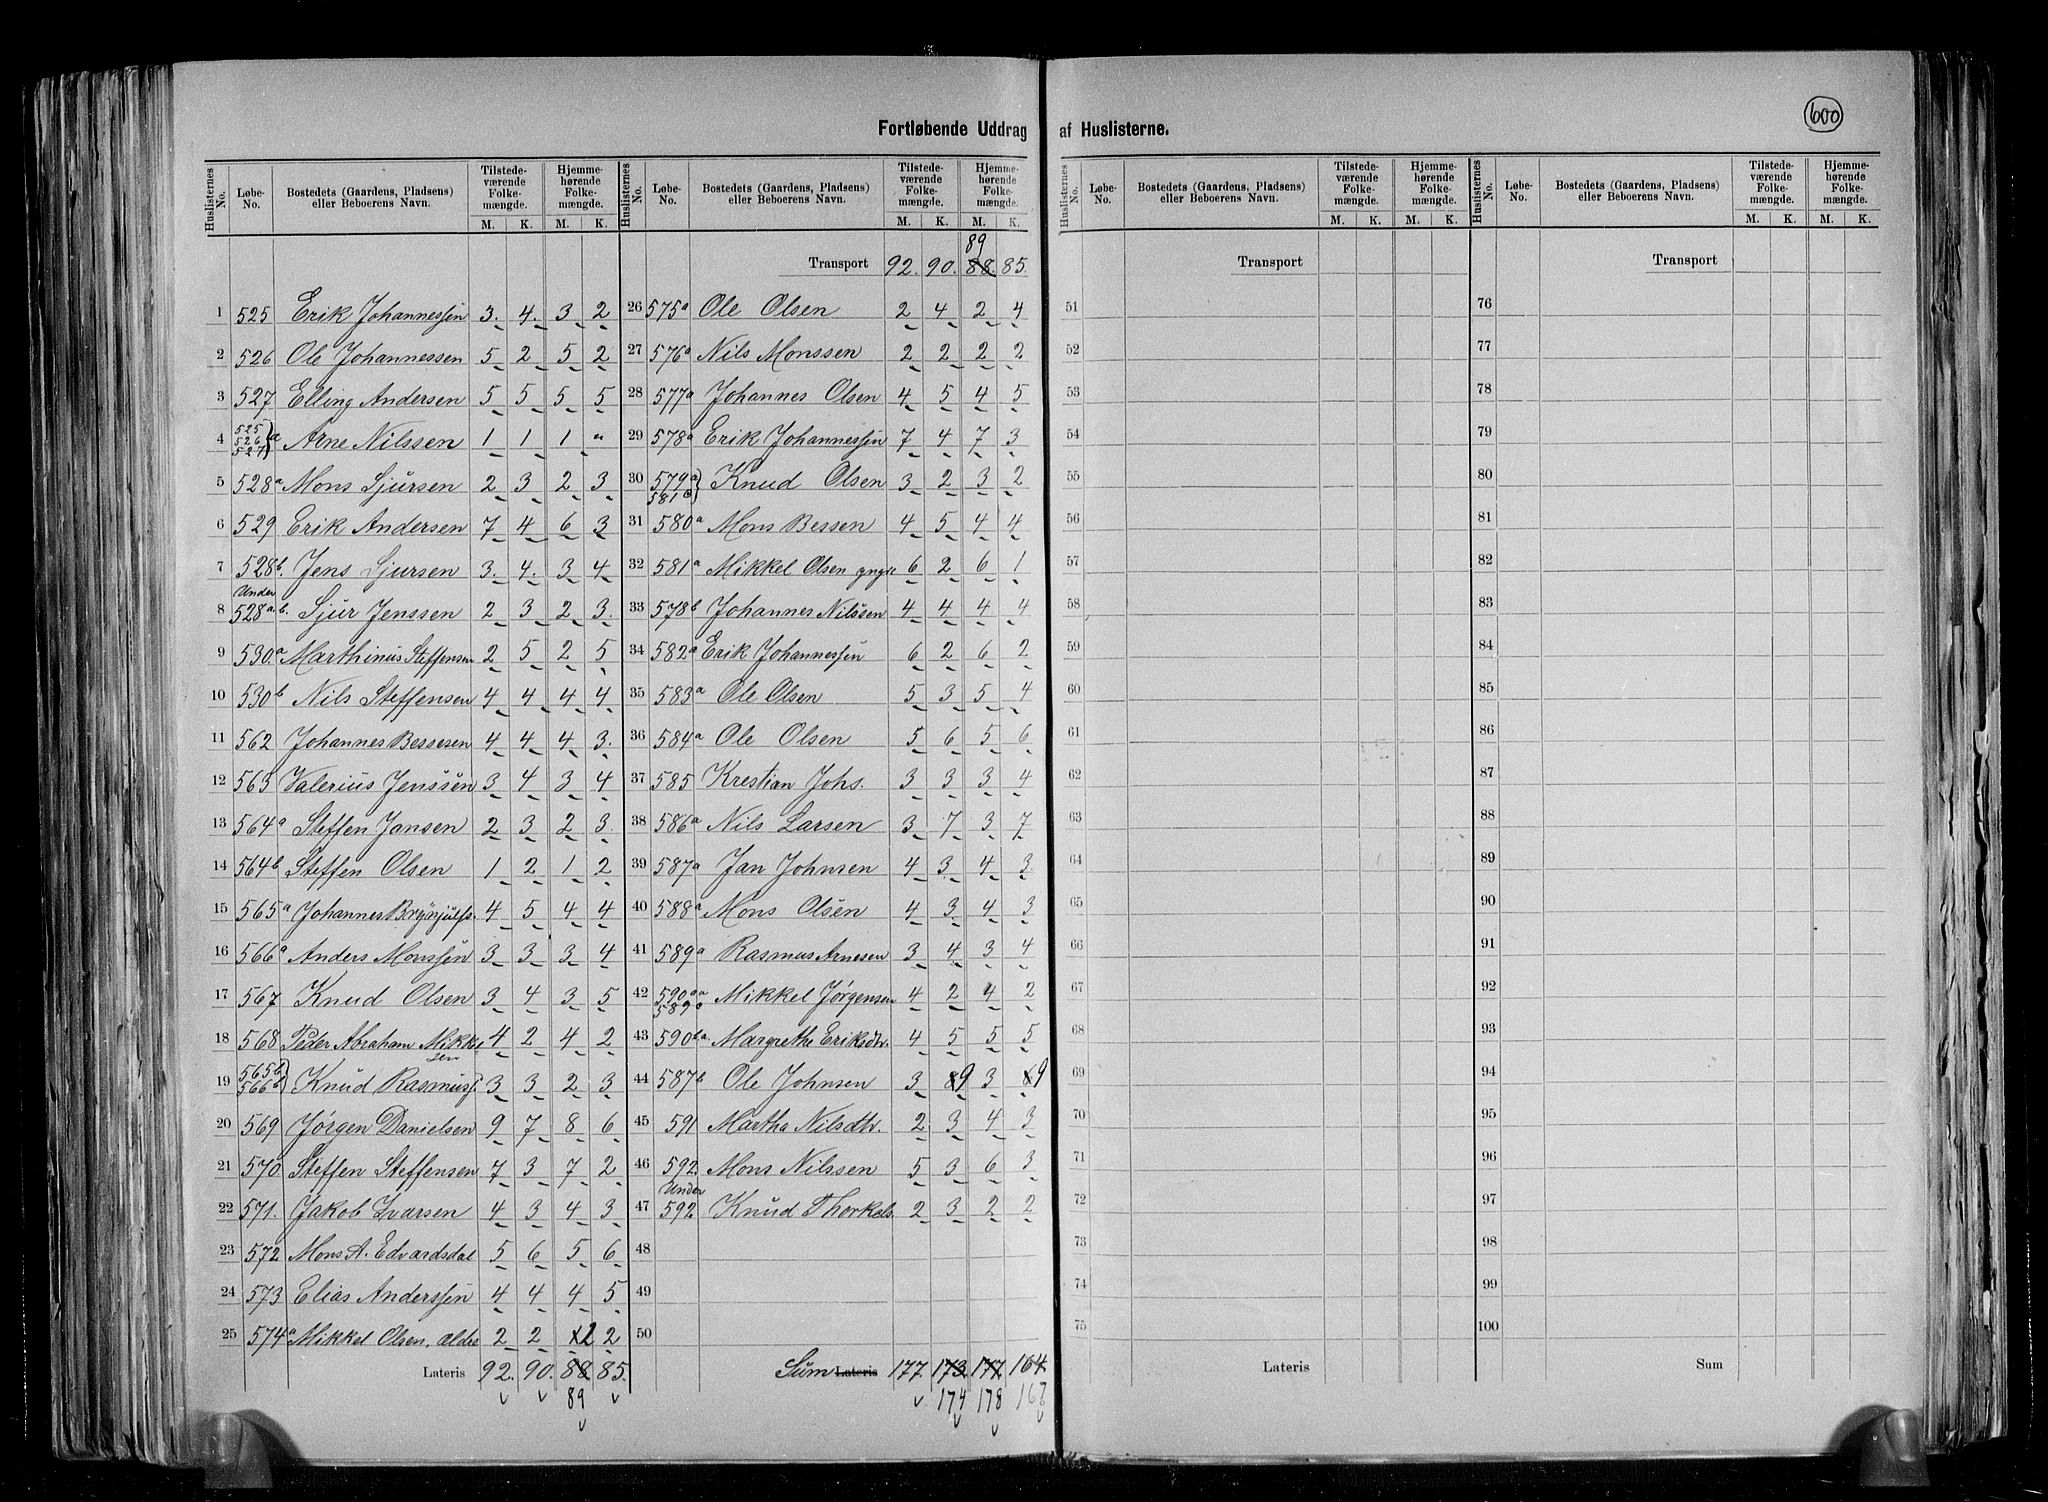 Fortløbende Uddrag af Huslisterne.
600
Huslisternes No. Løbe-No. Bostedets (Gaardens, Pladsens) eller Beboerens Navn. Tilstedeværende Folkemængde. M. K. Hjemmehørende Folkemængde. M. K.
1 525 Erik Johannessen 3. 4. 3 2
2 526 Ole Johannessen 5 2 5 2
3 527 Elling Andersen 5 5 5 5
4 525 526 527 } a Arne Nilssen 1 1 1 "
5 528a Mons Sjursen 2 3 2 3
6 529 Erik Andersen 7 4 6 3
7 528b. Jens Sjursen 3. 4. 3 4
8 Under 528a.b. Sjur Jenssen 2 3 2 3.
9 530.a Marthinus Steffensen 2 5 2 5
10 530b Nils Steffensen 4 4 4 4
11 562 Johannes Bessesen 4 4 4 3.
12 563 Valerius Jenssen 3 4 3 4
13 564a Steffen Jansen 2 3 2 3.
14 564b Steffen Olsen 1 2 1 2
15 565a Johannes Brynjulfs. 4 5 4 4
16 566a Anders Monssen 3 3 3 4
17 567 Knud Olsen 3 4 3 5
18 568 Peder Abraham Mikkelsen 4 2 4 2
19 565b 566b } Knud Rasmuss. 3 3 2 3
20 569 Jørgen Danielsen 9 7 8 6
21 570 Steffen Steffensen 7 3 7 2
22 571. Jakob Ivarsen 4 3 4 3
23 572 Mons A. Edvardsdal 5 6 5 6
24 573 Elias Anderssen 4 4 4 5
25 574a Mikkel Olsen, ældre 2 2 2 2
Lateris 92. 90. 88 85.
89
Huslisternes No. Løbe-No. Bostedets (Gaardens, Pladsens) eller Beboerens Navn. Tilstedeværende Folkemængde. M. K. Hjemmehørende Folkemængde. M. K.
89
Transport 92. 90. 88. 85.
26 575a Ole Olsen 2 4 2 4
27 576a Nils Monssen 2 2 2 2
28 577a Johannes Olsen 4 5 4 5
29 578a Erik Johannessen 7 4 7 3
30 579a 581c } Knud Olsen 3 2 3 2
31 580a Mons Bessen 4 5 4 4
32 581a Mikkel Olsen yngre 6 2 6 1
33 578b Johannes Nilssen 4 4 4 4
34 582a Erik Johannessen 6 2 6 2
35 583a Ole Olsen 5 3 5 4
36 584a Ole Olsen 5 6 5 6
37 585 Krestian Johs. 3 3 3 4
38 586a Nils Larsen 3 7 3 7
39 587a Jan Johnsen 4 3. 4 3.
40 588a Mons Olsen 4 3 4 3
41 589a Rasmus Arnesen 3 4 3 4
42 590aa 589c Mikkel Jørgensen 4 2 4 2
43 590ba. Margrethe Eriksdtr. 4 5 5 5
44 587b Ole Johnsen 3 89 3 9
45 591 Martha Nilsdtr. 2 3 4 3
46 592. Mons Nilssen 5 3 6 3
47 Under 592 Knud Thorkels. 2 3 2 2
48
49
50
Sum Lateris 177. 173. 177 164
174 178 167
Huslisternes No. Løbe-No. Bostedets (Gaardens, Pladsens) eller Beboerens Navn. Tilstedeværende Folkemængde. M. K. Hjemmehørende Folkemængde. M. K.
Transport
51
52
53
54
55
56
57
58
59
60
61
62
63
64
65
66
67
68
69
70
71
72
73
74
75
Lateris
Huslisternes No. Løbe-No. Bostedets (Gaardens, Pladsens) eller Beboerens Navn. Tilstedeværende Folkemængde. M. K. Hjemmehørende Folkemængde. M. K.
Transport
76
77
78
79
80
81
82
83
84
85
86
87
88
89
90
91
92
93
94
95
96
97
98
99
100
Sum